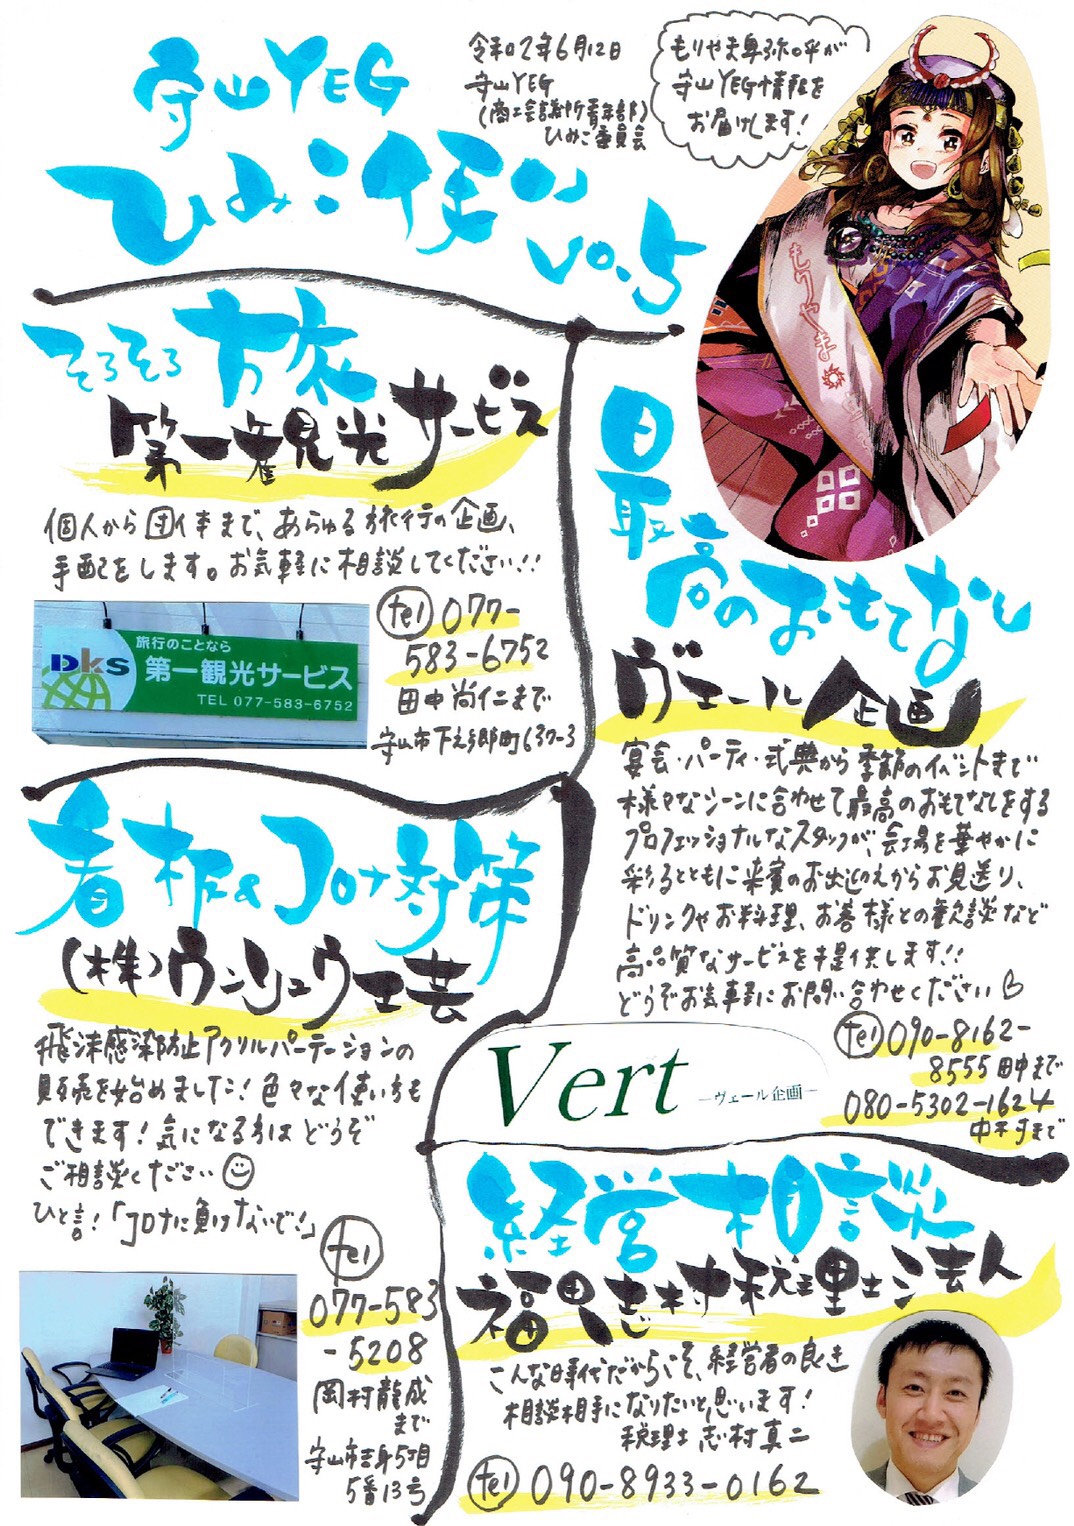 守山YEG
ひみこ便り
vo.5
令和2年6月12日
守山YEG
(商工会議所青年部)
ひみこ委員会
もりやま卑弥呼が
守山YEG情報を
お届けします!
もりやま
そろそろ旅
第一観光サービス
個人から団体まで、あらゆる旅行の企画、
手配をします。お気軽に相談してください!!
旅行のことなら
DKS
第一観光サービス
TEL 077-583-6752
tel 077-
583-6752
田中尚仁まで
守山市下之郷町637-3
日本
最高のおもてなし
ヴェール企画
宴会・パーティ・式典から季節のイベントまで
様々なシーンに合わせて最高のおもてなしをする
プロフェッショナルなスタッフが、会場を華やかに
彩るとともに来賓のお出迎えからお見送り、
ドリンクやお料理、お客様との歓談など
高品質なサービスを提供します!!
どうぞお気軽にお問い合わせください
tel 090-8162-
8555 田中まで
080-5302-1624
中村まで
Vert
—ヴェール企画—
看板&コロナ対策
(株)ウンリュウ工芸
飛沫感染防止アクリルパーテーションの
販売を始めました!色々な使い方も
できます!気になる方はどうぞ
ご相談ください
ひと言!「コロナに負けないで!」
tel
077-583
-5208
岡村龍成
まで
守山市吉身5丁目
5番13号
経営相談
福田志村税理士法人
こんな時代だからこそ、経営者の良き
相談相手になりたいと思います!
税理士 志村真二
tel 090-8933-0162